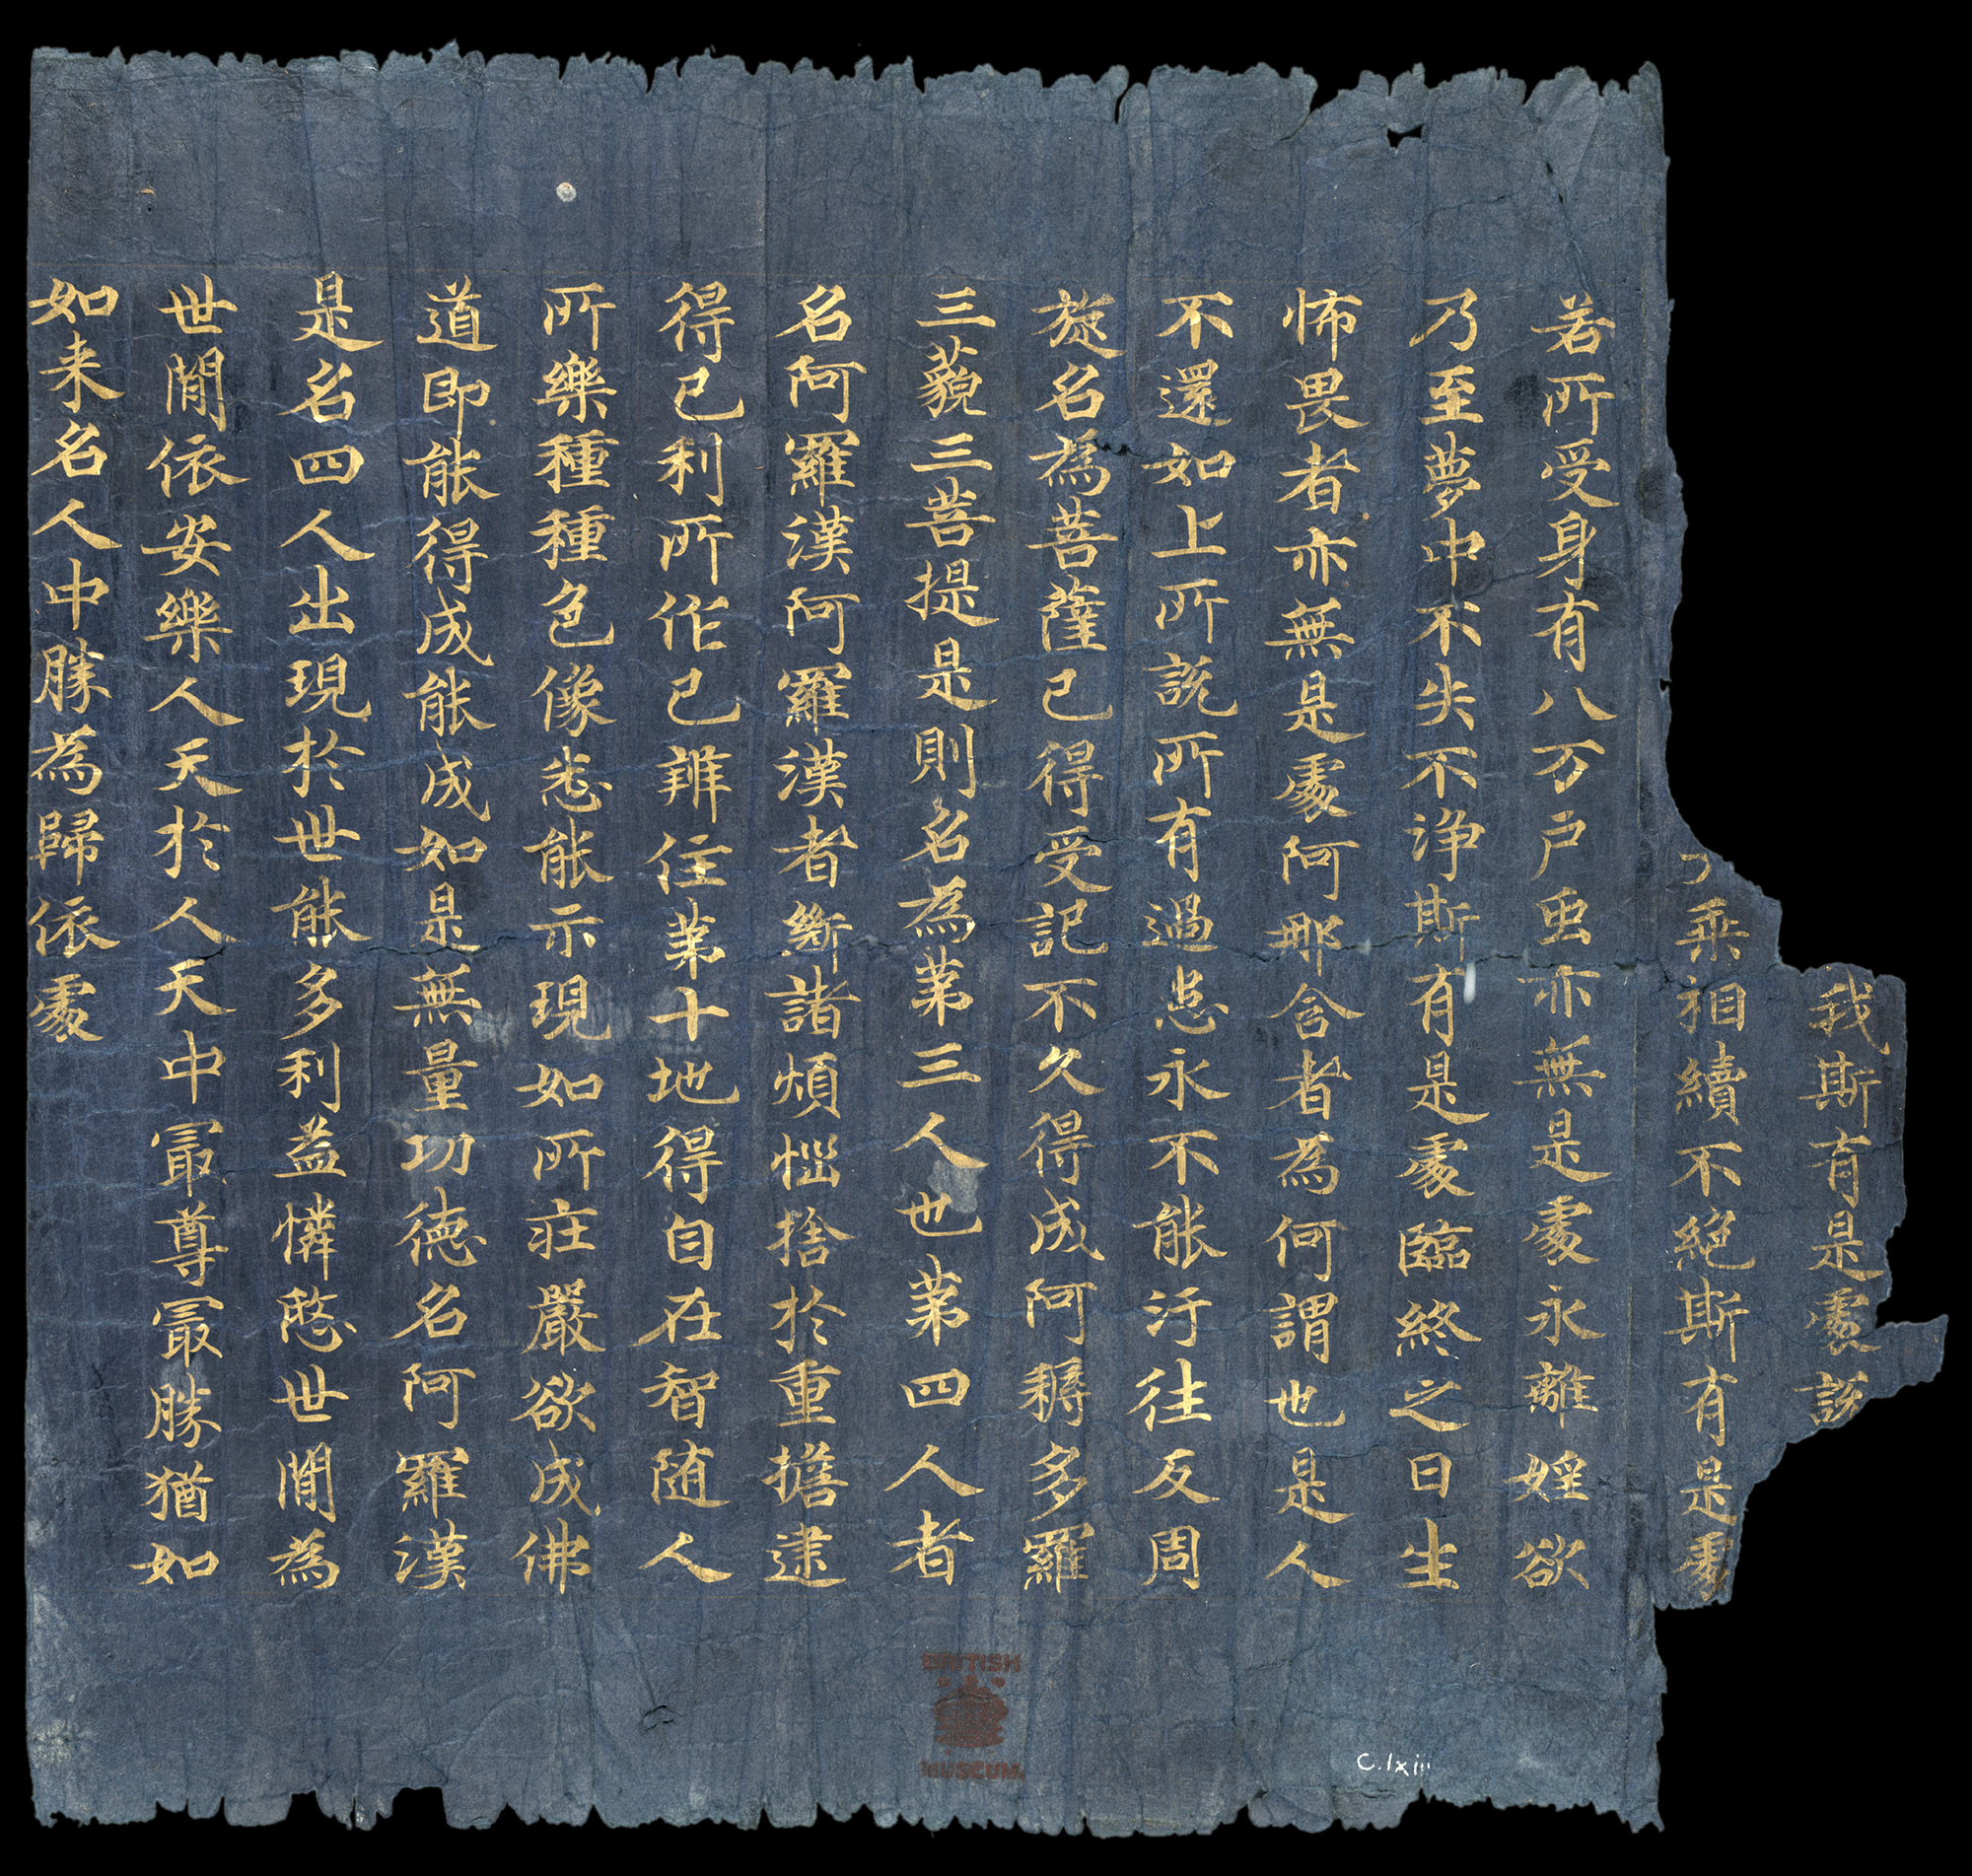 我斯有是處說
乘相續不絕斯有是處
若所受身有八万戶虫亦無是處永離婬欲
乃至夢中不失不淨斯有是處臨終之日生
怖畏者亦無是處阿那含者為何謂也是人
不還如上所說所有過患永不能汙往反周
旋名為菩薩已得受記不久得成阿耨多羅
三藐三菩提是則名為第三人也第四人者
名阿羅漢阿羅漢者斷諸煩惱捨於重擔逮
得己利所作已辦住第十地得自在智随人
所樂種種色像悉能示現如所莊嚴欲成佛
道即能得成能成如是無量功德名阿羅漢
是名四人出現於世能多利益憐愍世間為
世間依安樂人天於人天中冣尊冣勝猶如
如来名人中勝為歸依處
BRITISH
MUSEUM
C.lxiii